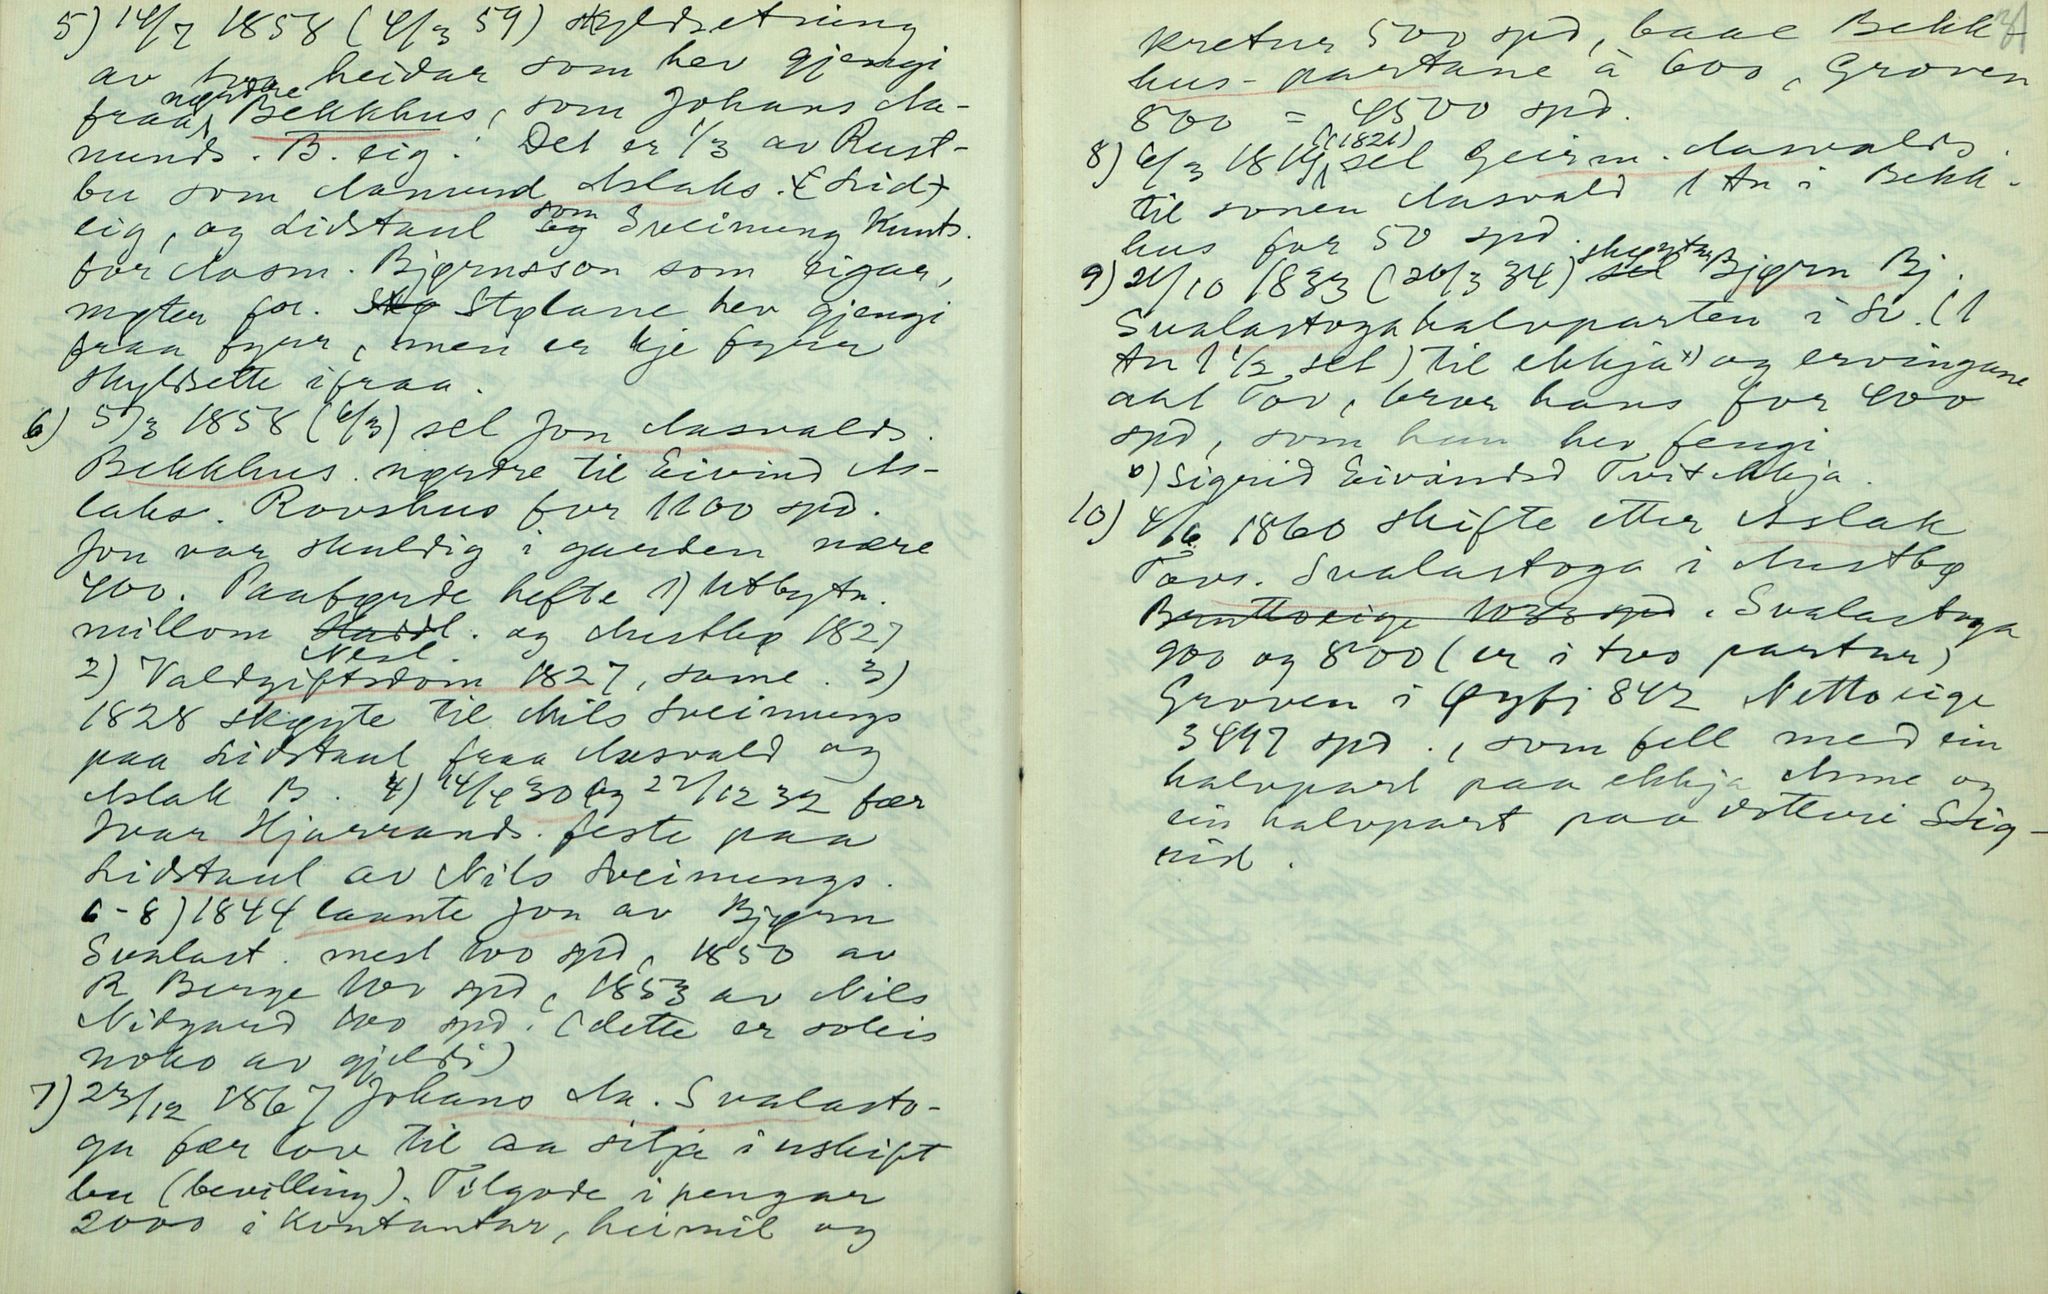 5) 14/7 1858 (4/3 59) skyldsetning
av tvo heidar som hev gjengi
fraa nørdre Bekkhus, som Johans Aa-
munds. B. eig. Det er 1/3 av Rust-
bu som Aamund Aslaks. (Lid)
eig, og Lidstaul som Sveinung Knuts.
for Aasm. Bjørnsson som eigar,
møter for. Stølane hev gjengi
fraa fyrr, men er kje fyrr
skyldsette ifraa.
6) 5/3 1858 (6/3) sel Jon Aasvalds.
Bekkhus nørdre til Eivind As-
laks. Rovshus for 1100 spd.
Jon var skuldig i garden nære
400. Paaførde hefte 1) Utbytn.
millom Nesl. og Austbø 1827
2) Valdgiftsdom 1827, same. 3)
1828 skøyte til Nils Sveinungs
paa Lidstaul fraa Aasvald og
Aslak B. 4) 14/4 30 og 22/12 32 fær
Ivar Hjarrands. feste paa
Lidstaul av Nils Sveinungs.
6-8) 1844 laante Jon av Bjørn
Svalast. mest 100 spd, 1850 av
R Berge 100 spd, 1853 av Nils
Nidgard 100 spd. (dette er soleis
noko av gjeldi)
7) 23/12 1867 Johans Aa. Svalasto-
ga fær lov til aa sitja i uskift
bu (bevilling). Tilgode i pengar
2000 i kontantar, heimil og
kretur 500 spd, baae Bekk-
hus-partane à 600, Groven
800 = 4500 spd.
8) 6/3 1819 (1821) sel Geirm. Aasvalds.
til sonen Aasvald 1 tn i Bekk-
hus for 50 spd.
9) 21/10 1833 (26/3 34) skøytar Bjørn Bj.
Svalastoga halvparten i Sv. (1
tn 1 1/2 set) til ekkja x) og ervingane
aat Tov, bror hans for 400
spd, som han hev fengi
x) Sigrid Eivindsd Tvitekkja.
10) 4/6 1860 skifte etter Aslak
Tovs. Svalastoga i Austbø
Bruttoeige. Svalastoga
900 og 800 (er i tvo partar)
Groven i Øyfj 842 Nettoeige
3497 spd., som fell med ein
halvpart paa ekkja Anne og
ein halvpart paa dotteri Sig-
rid.